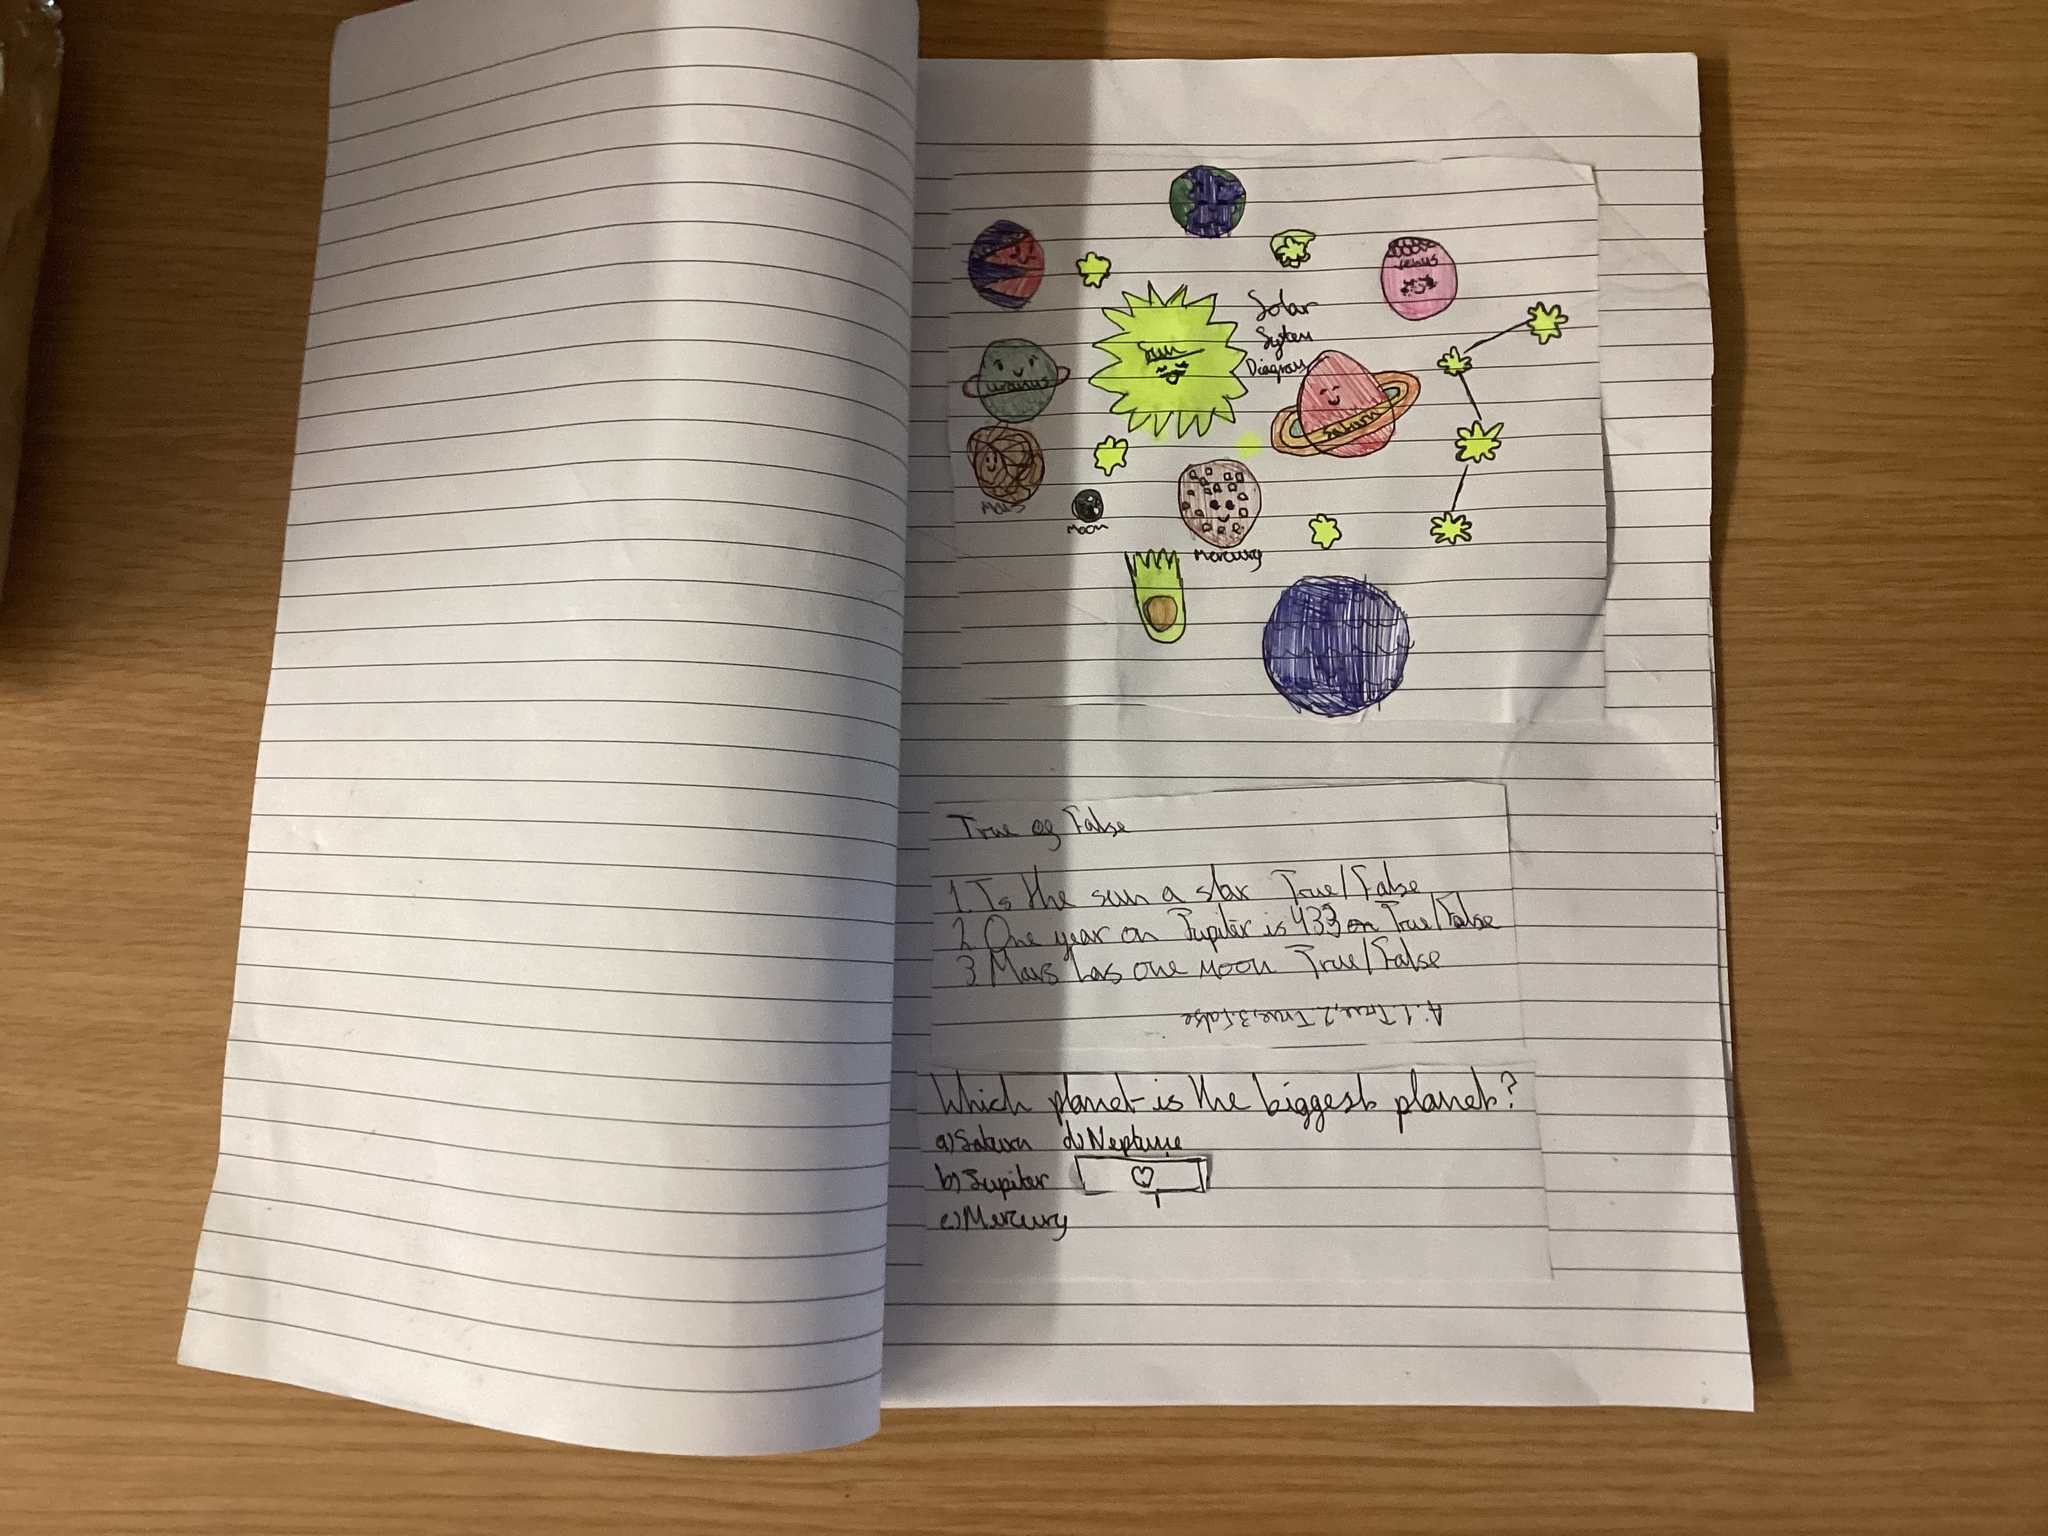 Solar
System
Diagram
Venus
Sun
Uranus
Saturn
Mars
Moon
Mercury
True og False
1. Is the sun a star True/False
2 One year on Jupiter is 433 on True/False
3 Mars has one moon True/False
A: 1. True, 2. True, 3. False
Which planet is the biggest planet?
a) Saturn d) Neptune
b) Jupiter
c) Mercury